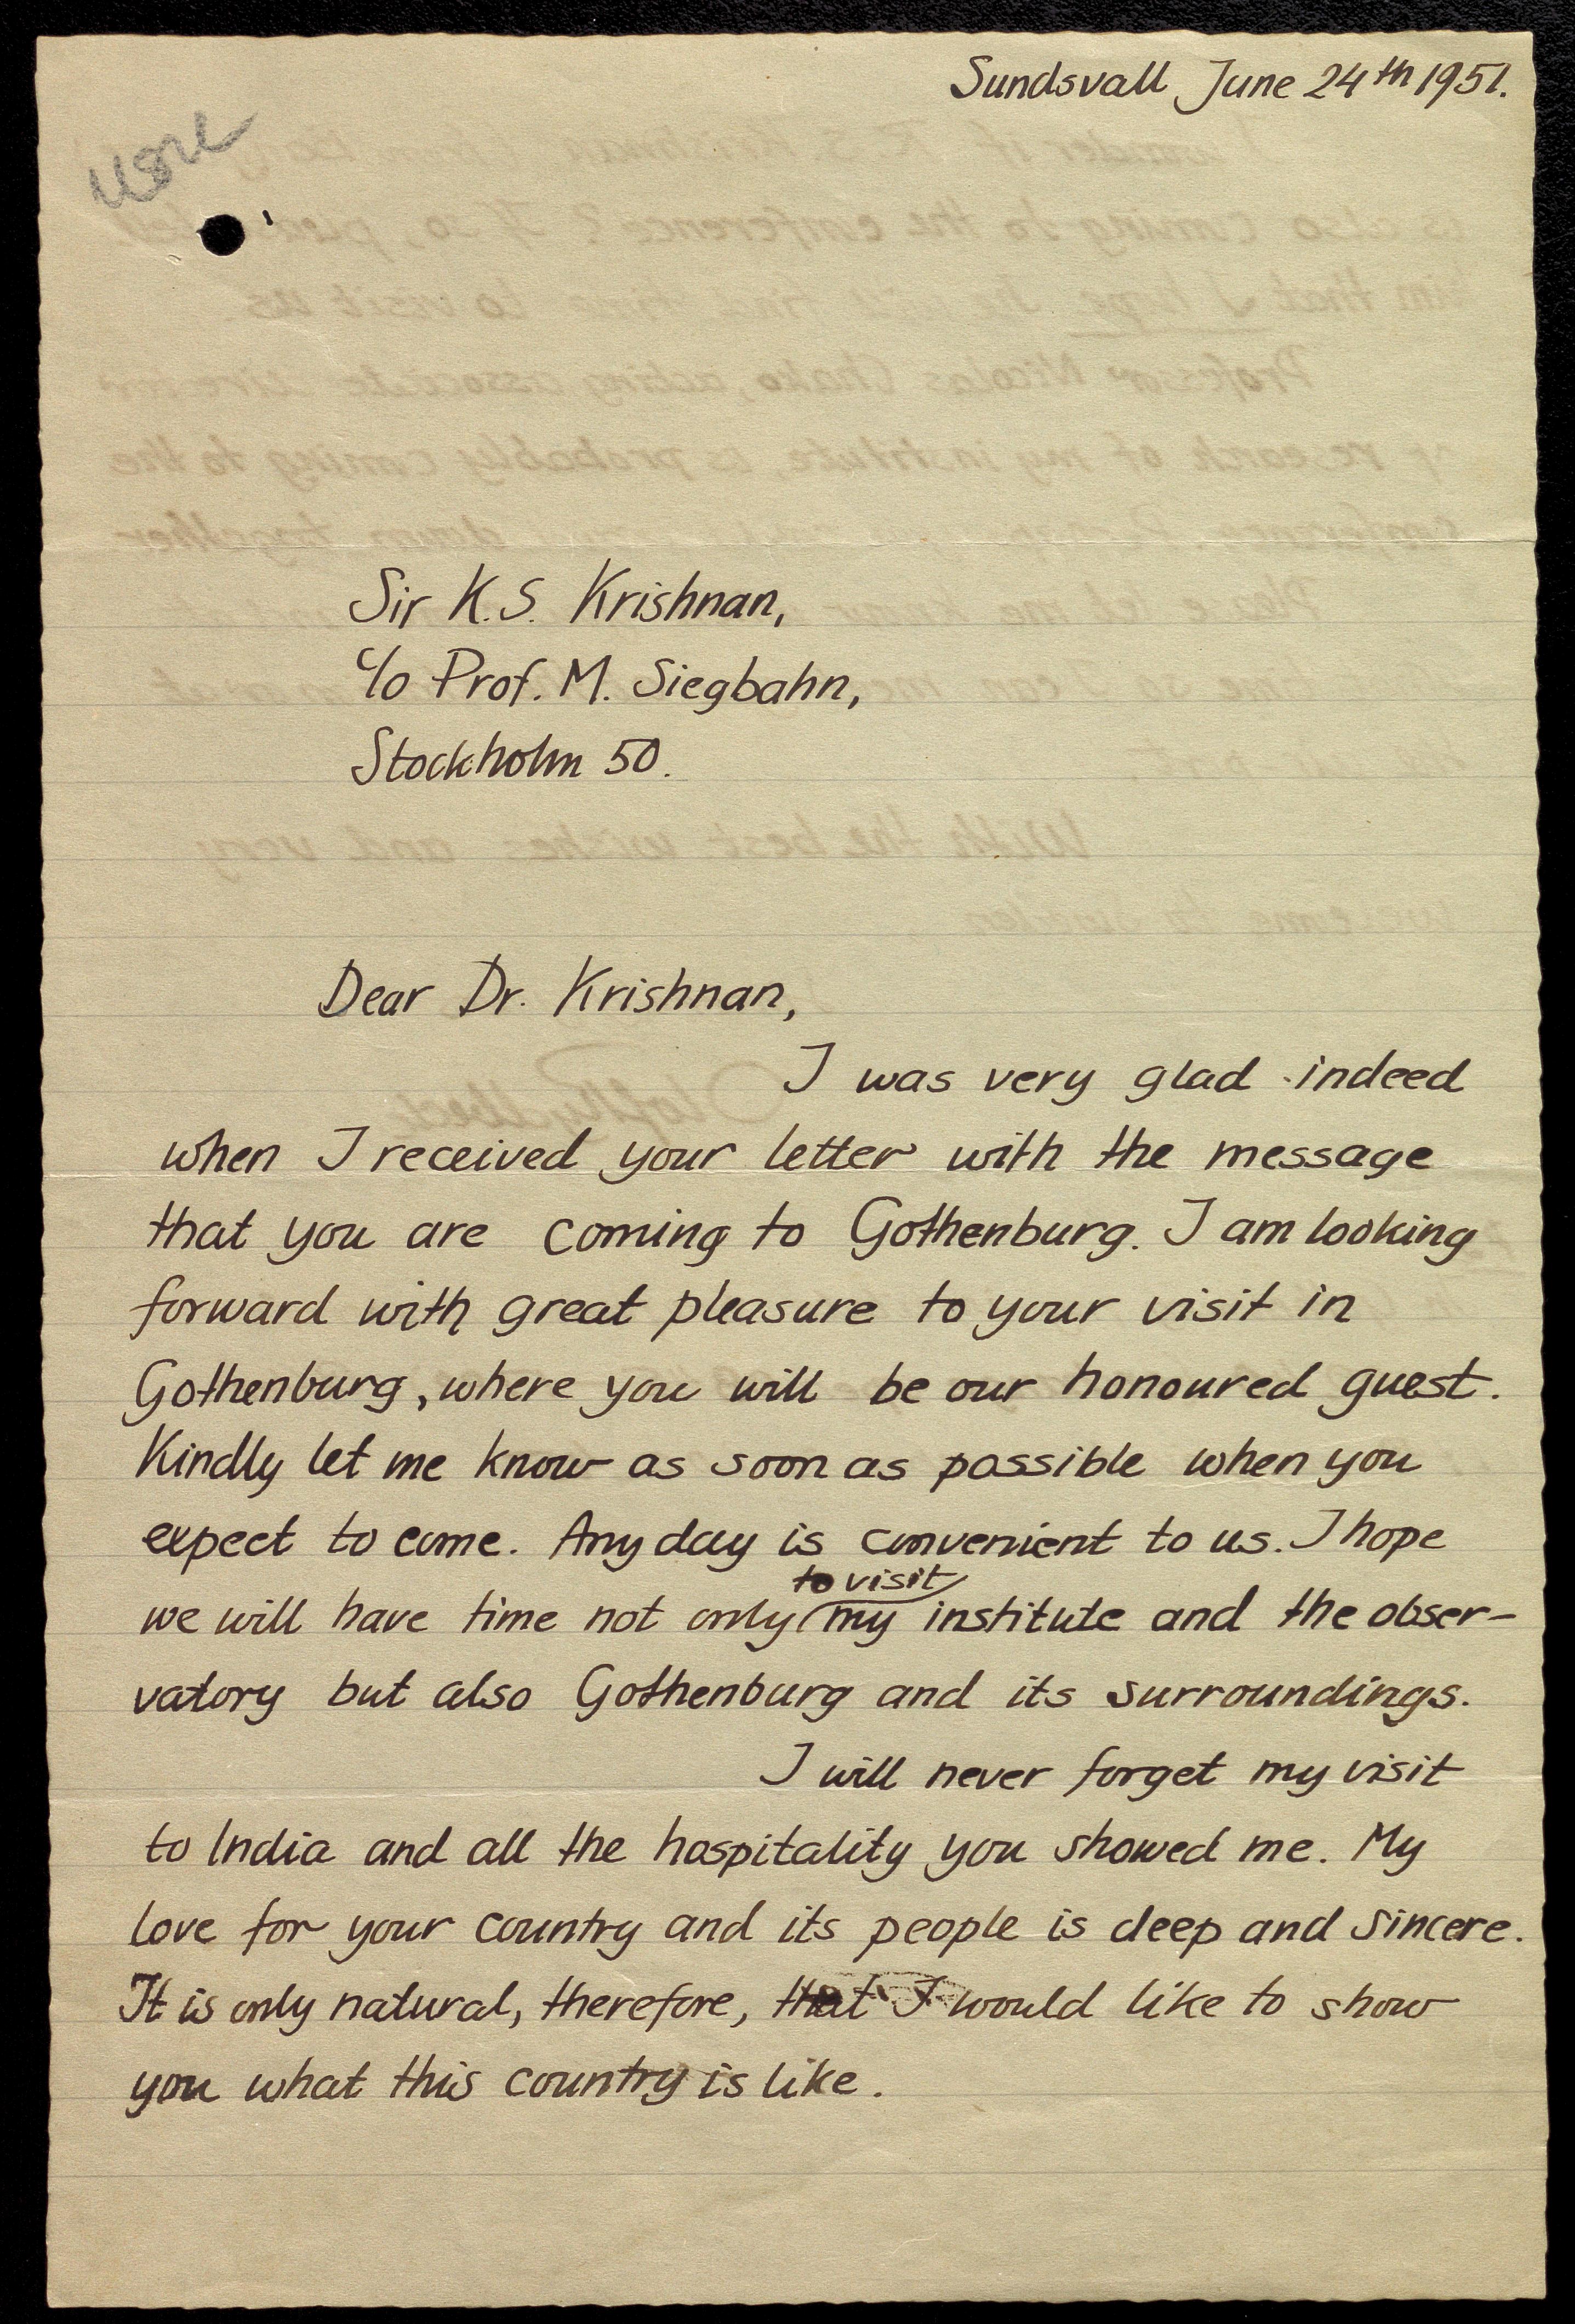 Sundsvall June 24th 1951.
Sir K.S. Krishnan,
c/o Prof. M. Siegbahn,
Stockholm 50.
Dear Dr. Krishnan,
I was very glad indeed
when I received your letter with the message
that you are coming to Gothenburg. I am looking
forward with great pleasure to your visit in
Gothenburg, where you will be our honoured guest.
Kindly let me know as soon as possible when you
expect to come. Any day is convenient to us. I hope
to visit
we will have time not only my institute and the obser-
vatory but also Gothenburg and its surroundings.
I will never forget my visit
to India and all the hospitality you showed me. My
love for your country and its people is deep and sincere.
It is only natural, therefore, that I would like to show
you what this country is like.